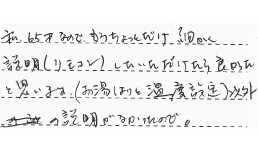 私、65才なので、もうちょっとだけ細かく
説明(リモコン)したいただけたら良かった
と思います。(お湯はりと温度設定)以外
の説明がなかったので。